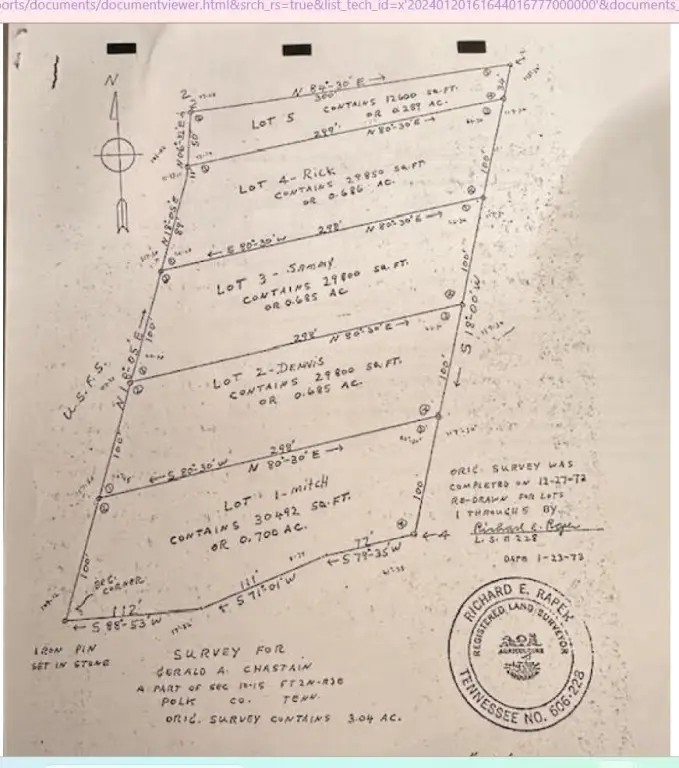 orts/documents/documentviewer.html&srch_rs=true&list_tech_id=x'20240120161644016777000000'&documents_
N
2
N 84°-30' E →
300'
CONTAINS 12600 SQ.FT.
OR 0.289 AC.
LOT 5
299'
N 80°-30' E →
N 06°-32' E
50'
34'
11'
LOT 4-RICK
CONTAINS 29850 SQ.FT
OR 0.686 AC.
100'
N 18°-05' E
89'
← S 80°-30' W
298'
N 80°-30' E →
LOT 3-SAMMY
CONTAINS 29800 SQ.FT.
OR 0.685 AC
100'
S 18°-00' W
N 18°-05' E →
100'
298'
N 80°-30' E →
U.S.F.S.
LOT 2-DENNIS
CONTAINS 29800 SQ.FT.
OR 0.685 AC.
100'
100'
← S 80°-30' W
298'
N 80°-30' E →
LOT 1-mitch
CONTAINS 30492 SQ.FT.
OR 0.700 AC.
100
100'
72'
← S 79°-35' W
← 4
111'
← S 71°-01' W
BEG.
CORNER
112'
← S 88°-53' W
IRON PIN
SET IN STONE
ORIG. SURVEY WAS
COMPLETED ON 12-27-72
RE-DRAWN FOR LOTS
1 THROUGH 5 BY
L.S. # 228
DATE 1-23-73
SURVEY FOR
GERALD A. CHASTAIN
A PART OF SEC 10-15 FT2N-R3E
POLK CO. TENN.
ORIG. SURVEY CONTAINS 3.04 AC.
RICHARD E. RAPER
REGISTERED LAND SURVEYOR
AGRICULTURE
TENNESSEE NO. 606-228